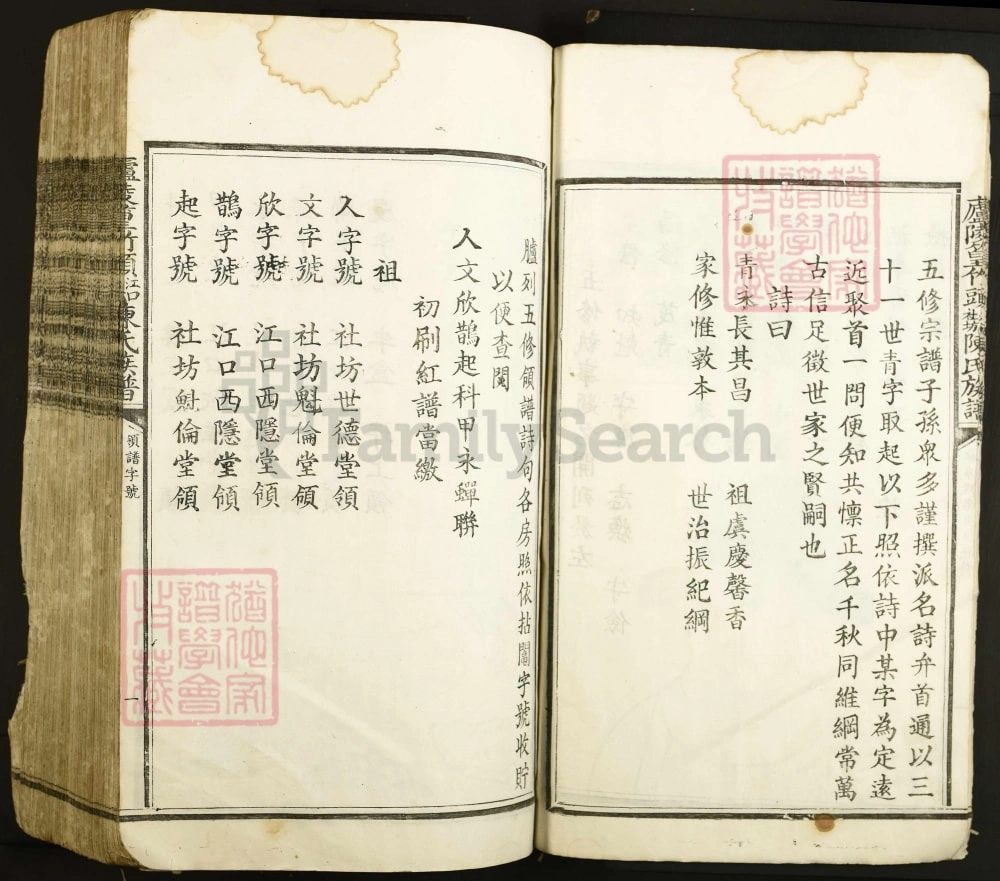 五修宗譜子孫衆多謹撰派名詩弁首通以三
十一世青字取起以下照依詩中某字為定遠
近聚首一問便知共懔正名千秋同維綱常萬
古信足徵世家之賢嗣也
詩曰
青永長其昌 祖虞慶馨香
家修惟敦本 世治振紀綱
臚列五修領譜詩句各房照依拈鬮字號收貯
以便查閱
人文欣鵲起科甲永蟬聯
初刷紅譜當繳
祖
人字號 社坊世德堂領
文字號 社坊魁倫堂領
欣字號 江口西隱堂領
鵲字號 江口西隱堂領
起字號 社坊魁倫堂領
領譜字號
一
FamilySearch